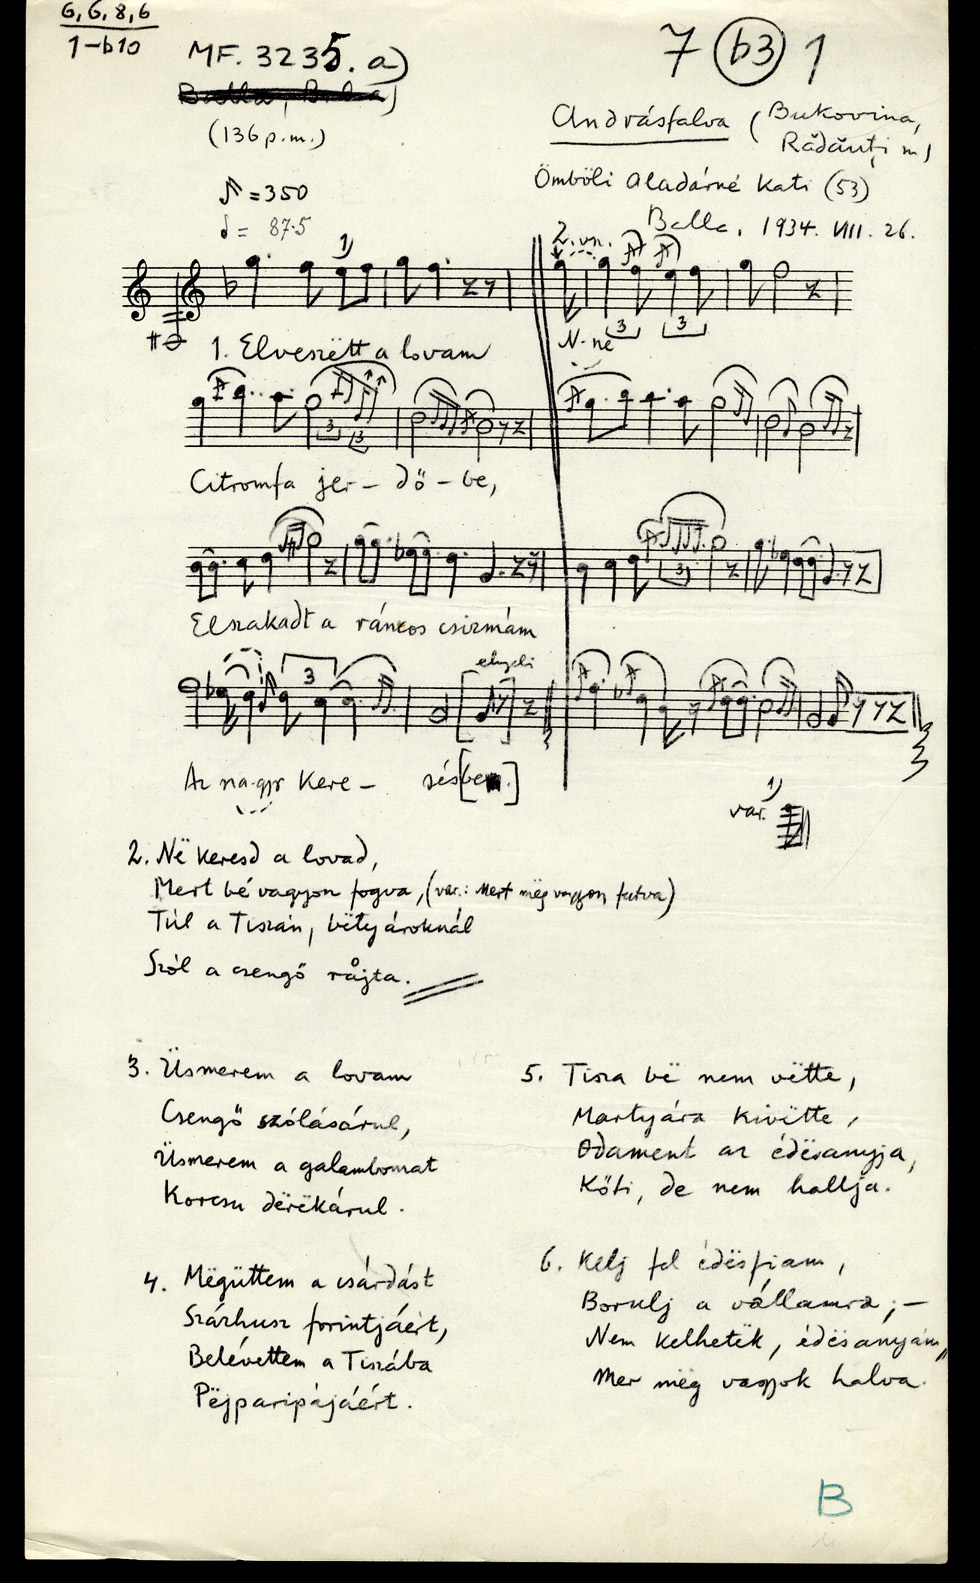 6, 6, 8, 6
1-b10
MF. 3235. a)
(136 p.m.)
7 (b3) 1
Andrásfalva (Bukovina,
Rădăuţi m)
Ömböli Aladárné Kati (53)
Balla, 1934. VIII. 26.
♪ =350
𝅗𝅥 = 87.5
1)
2. vn.
3 3
N. në
1. Elveszëtt a lovam
3 3
Citromfa jer- dő- be,
3
Elszakadt a ráncos csizmám
3
elnyeli
Az na-gy kere- sés[ben.]
1)
var.
2. Në keresd a lovad,
Mert bé vagyon fogva, (var.: Mert mëg vagyon futva)
Túl a Tiszán, bëtyároknál
Szól a csengő råjta.
3. Üsmerem a lovam
Csengő szólásárul,
Üsmerem a galambomat
Korcsu dërëkárul.
4. Mëgüttem a csárdást
Szárhusz forintjáért,
Belévettem a Tiszába
Pëjparipájáért.
5. Tisza bë nem vëtte,
Martyára kivëtte,
Odament az édësanyja,
Kőti, de nem hallja.
6. Kelj fel édësfiam,
Borulj a vállamra; -
Nem kelhetëk, édësanyám,
Mer mëg vagyok halva.
B